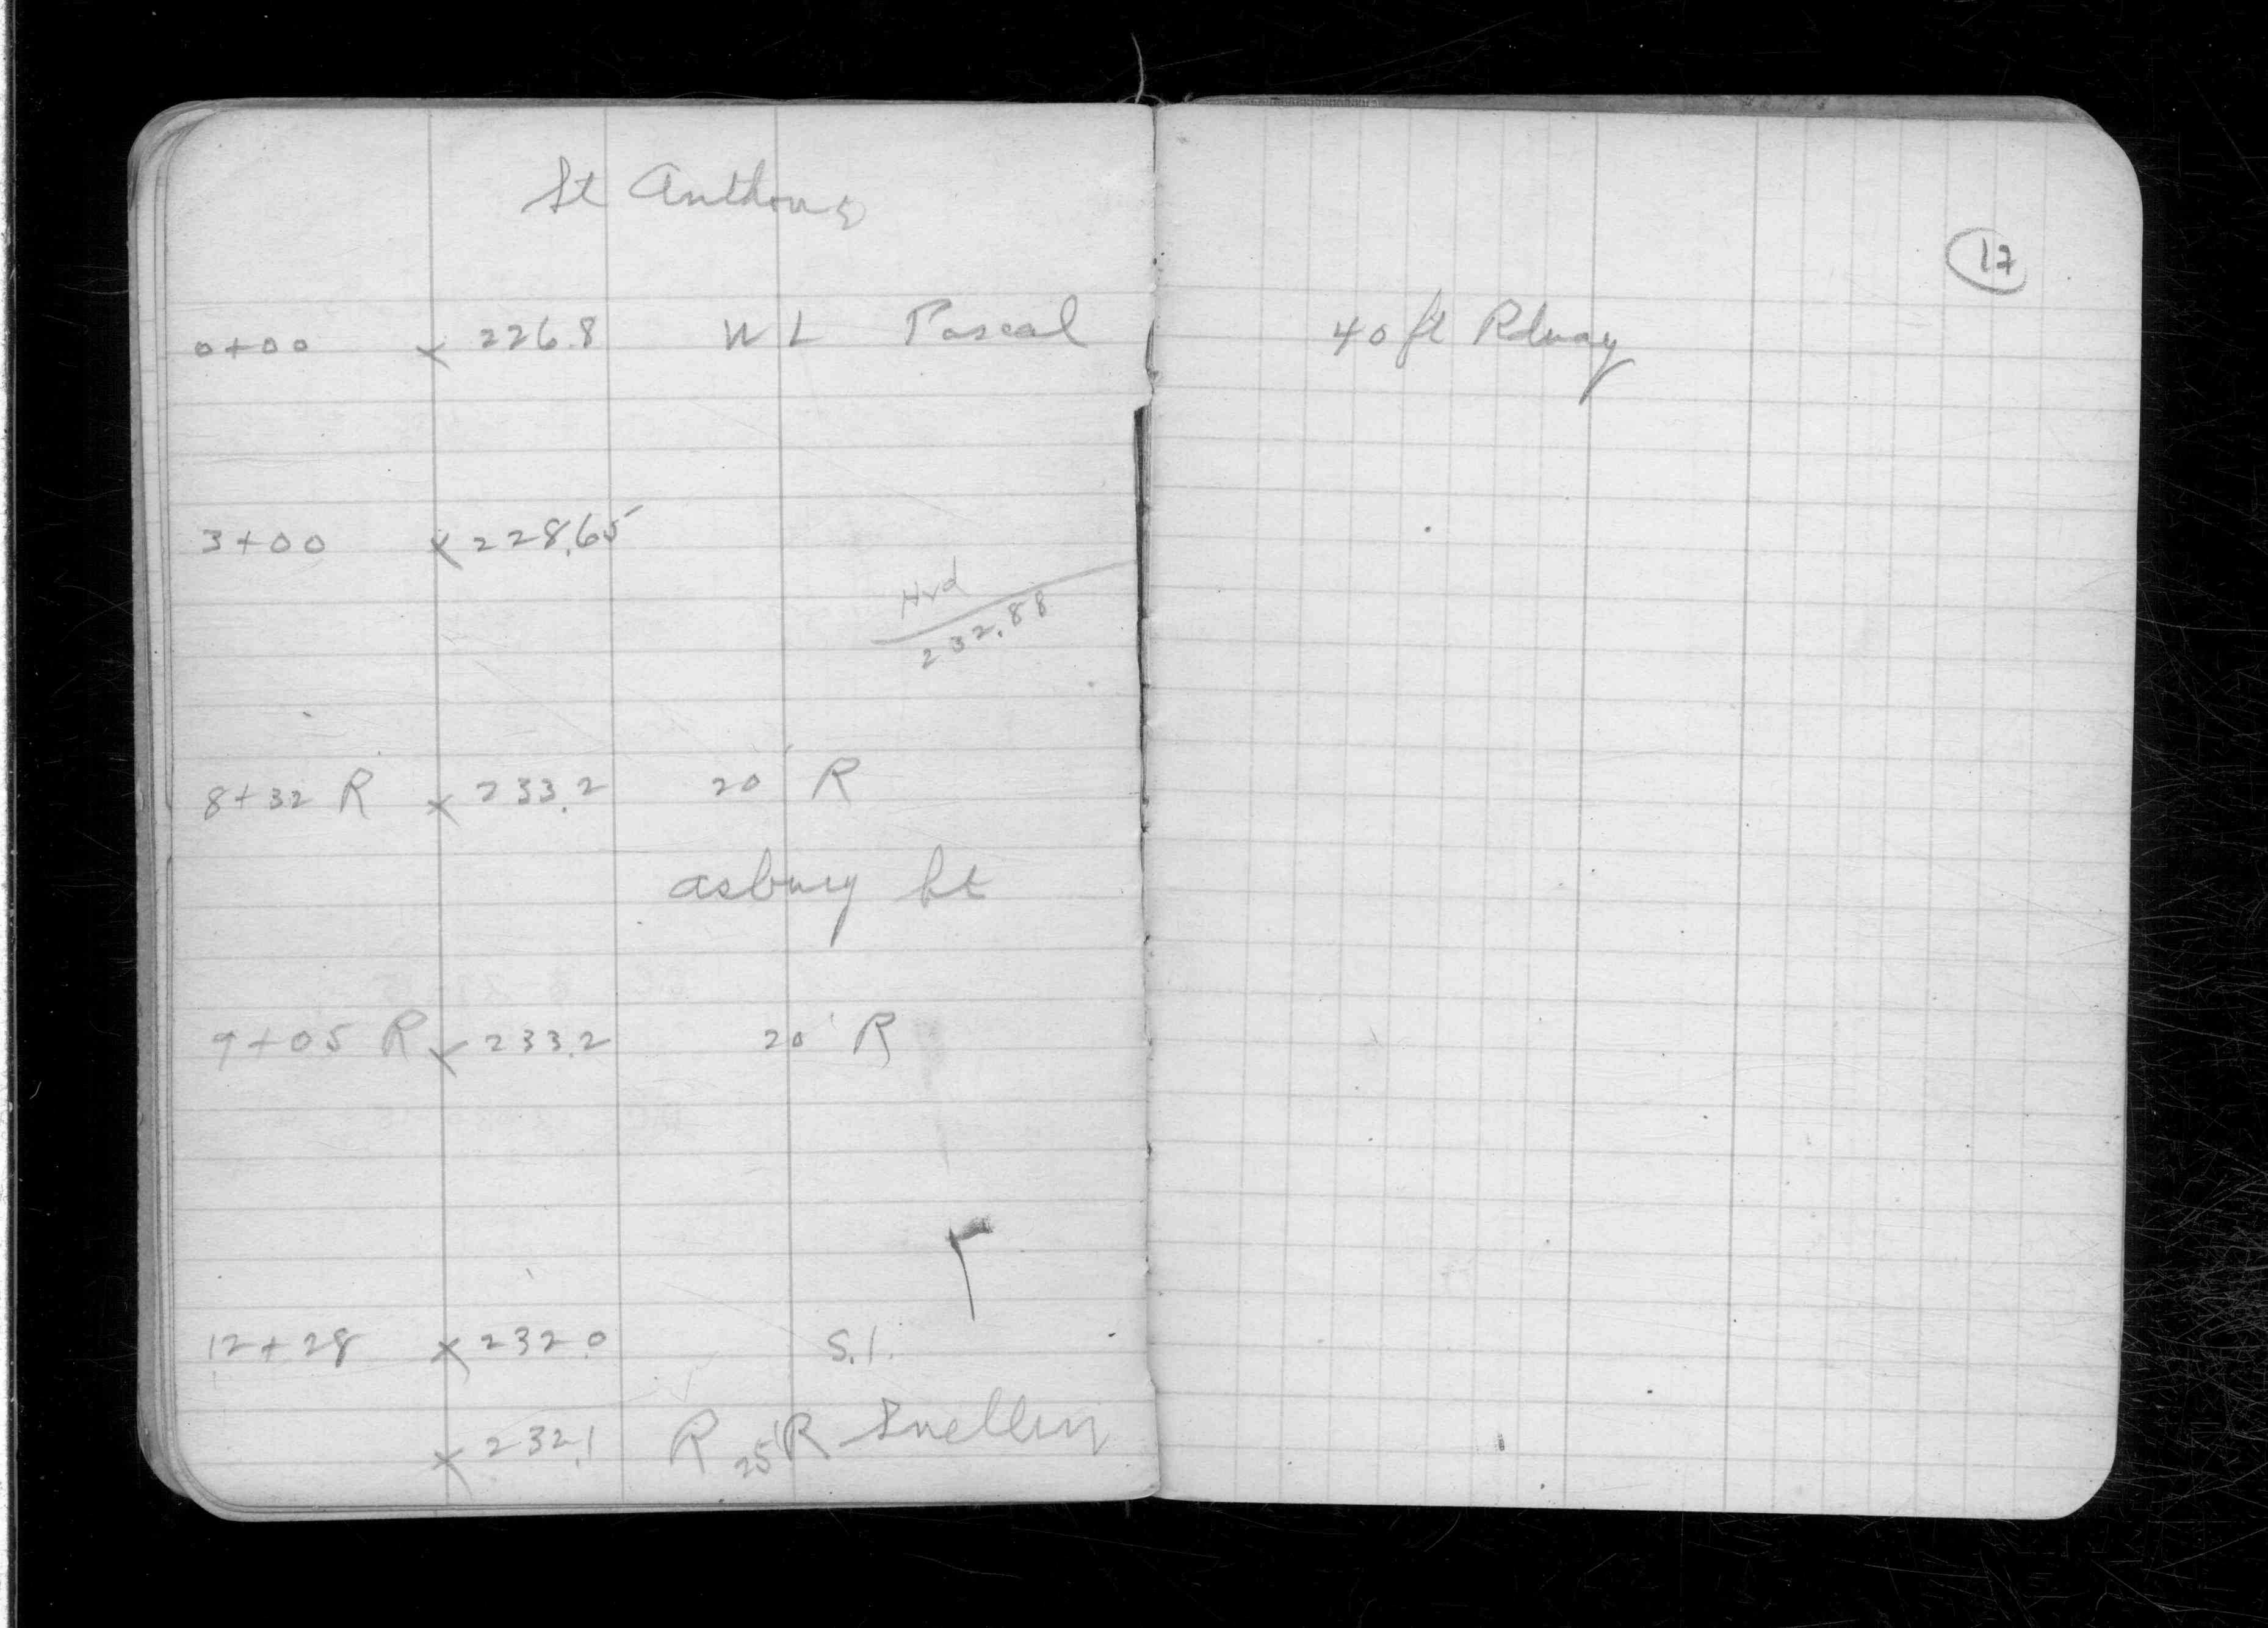 St Anthony
17
0+00 x 226.8 W L Pascal
40 ft Rdway
3+00 x 228.65
Hyd
232.88
8+32 R x 233.2 20' R
asbury St
9+05 R x 233.2 20' R
12+28 x 232.0 S.I.
x 232.1 R 25' R Snelling